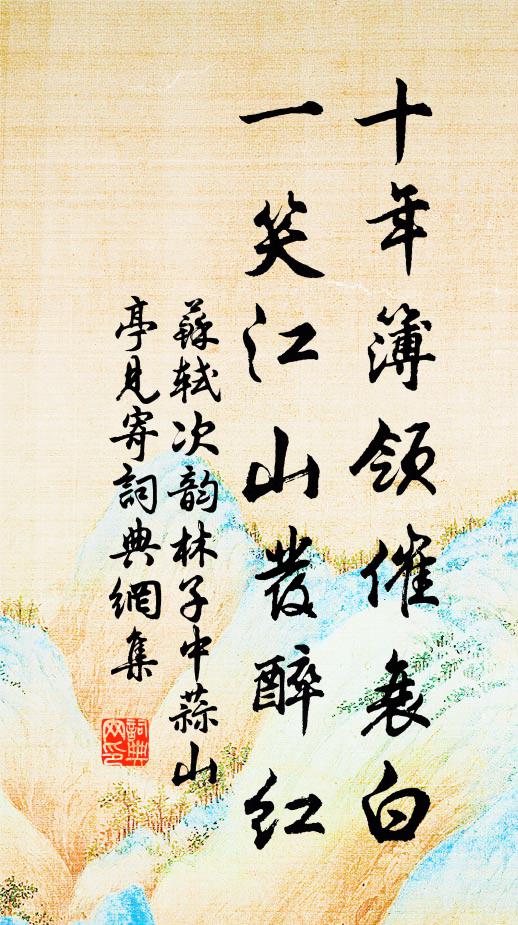 十年簿領催衰白
一笑江山發醉紅
蘇軾次韵林子中蒜山
亭見寄詞典網集
詞典
网印